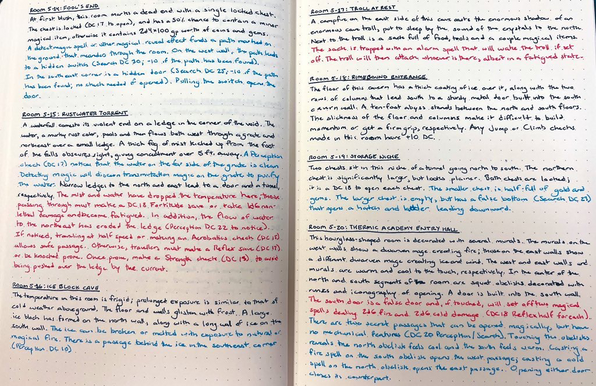 ROOM 5-14: FOOL'S END
At first blush, this room marks a dead end with a single locked chest.
The chest is locked (DC 17 to open), and has a 50% chance to contain a minor
magical item; otherwise it contains 2d4×100 gp worth of coins and gems.
A detect magic spell or other magical reveal effect finds a path marked on
the ground that meanders through the room. On the west wall, the path leads
to a hidden switch (Search DC 20; -10 if the path has been found).
In the southeast corner is a hidden door (Search DC 25; -10 if the path
has been found; no check needed if opened). Pulling the switch opens the
door.
ROOM 5-15: RUSTWATER TORRENT
A waterfall comes to its violent end on a ledge in the corner of the void. The
water, a murky rust color, pools and then flows both west through a grate and
northeast over a small ledge. A thick fog of mist kicked up from the foot
of the falls obscures sight, giving concealment over 5 ft. away. A Perception
check (DC 17) notices that the water on the far side of the grate is clean.
Detecting magic will discern transmutation magic on the grate to purify
the water. Narrow ledges to the north and east lead to a door and a tunnel,
respectively. The mist and water have dropped the temperature here; those
passing through must make a DC 15 Fortitude save or take 1d6 non-
lethal damage and become fatigued. In addition, the flow of water
to the northeast has eroded the ledge (Perception DC 22 to notice).
If noticed, traveling at half speed or making an Acrobatics check (DC 15)
allows safe passage. Otherwise, travellers must make a Reflex save (DC 15)
or be knocked prone. Once prone, make a Strength check (DC 15) to avoid
being pushed over the ledge by the current.
ROOM 5-16: ICE BLOCK CAVE
The temperature in this room is frigid; prolonged exposure is similar to that of
cold weather aboveground. The floor and walls glisten with frost. A large
ice block has formed on the north wall, along with a long wall of ice on the
south wall. The ice can be broken or melted with exposure to natural or
magical fire. There is a passage behind the ice in the southeast corner
(Perception DC 10)
ROOM 5-17: TROLL AT REST
A campfire on the east side of this cave casts the enormous shadow of an
enormous cave troll, put to sleep by the sound of the crystals to the north
Next to the troll is a sack full of food, tools and a couple magical items.
The sack is trapped with an alarm spell that will wake the troll if set
off. The troll will then attack whoever is there, albeit in a fatigued state.
ROOM 5-18: RIMEBOUND ENTRANCE
The floor of this cavern has a thick coating of ice over it, along with the two
rows of columns that lead south to a sturdy metal door built into the south
cavern wall. A ten-foot abyss stands between the north and south floors.
The slickness of the floor and columns make it difficult to build
momentum or get a firm grip, respectively. Any Jump or Climb checks
made in this room have +10 DC.
ROOM 5-19: STORAGE NICHE
Two chests sit in this niche of a tunnel going north to south. The northern
chest is significantly larger, but looks plainer. Both chests are locked;
it is a DC 18 to open each chest. The smaller chest is half-full of gold and
gems. The larger chest is empty, but has a false bottom (Search DC 21)
that opens a hatch and ladder leading downward.
ROOM 5-20: THERMIC ACADEMY ENTRY HALL
This hourglass-shaped room is decorated with several murals. The murals on the
west walls show a dwarven mage creating fire; those on the east walls show
a different dwarven mage creating ice and wind. The west and east walls and
murals are warm and cool to the touch, respectively. In the center of the
north and south segments of the room are squat obelisks decorated with
runes and iconography of opening. A door is built into the south wall.
The south door is a false door and, if touched, will set off twin magical
spells dealing 2d6 fire and 2d6 cold damage. (DC 18 Reflex half for each).
There are two secret passages that can be opened magically, but have
no mechanical features (DC 20 Perception/Search). Touching the obelisks
reveals the north obelisk feels cool and the south feels warm. Casting a
fire spell on the south obelisk opens the west passage; casting a cold
spell on the north obelisk opens the east passage. Opening either door
closes its counterpart.